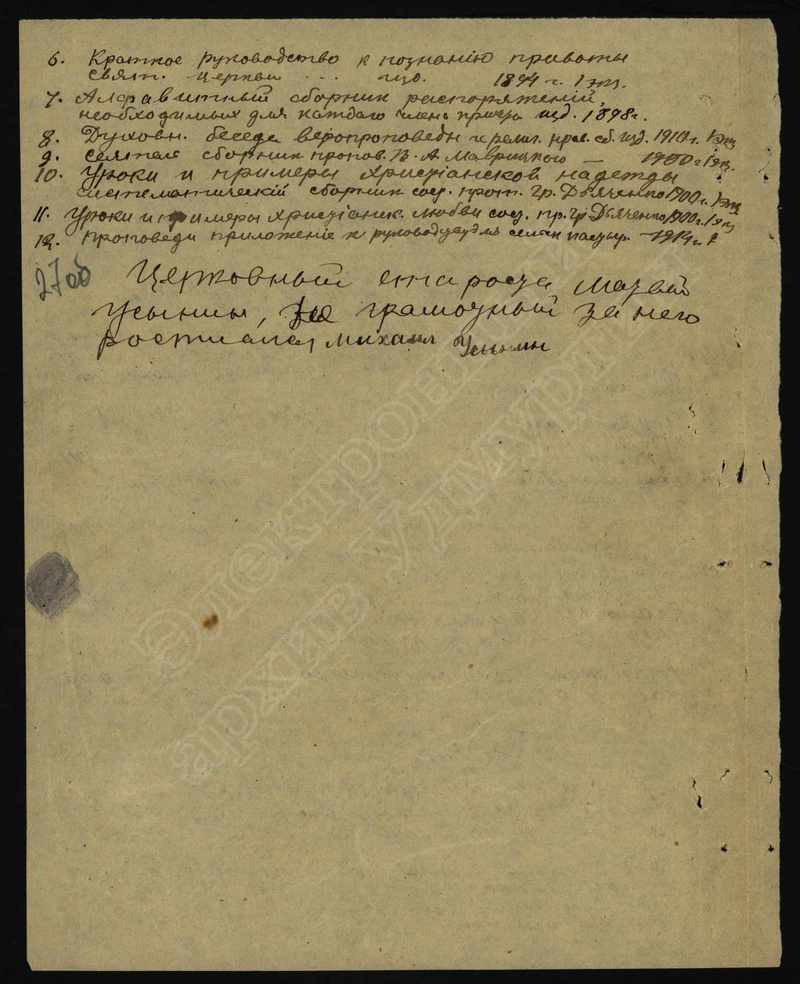 6. Краткое руководство к познанію правоты
свят. церкви ... изд. 1894 г. 1 экз.
7. Алфавитный сборник распоряжений,
необходимых для каждаго члена причта изд. 1898 г.
8. Духовн. беседа веропроповедн и религ. нрав. сб. изд. 1910 г. 1 экз
9. сборник пропов. В. А. Маврицкого — 1900 г 1 экз.
10. Уроки и примеры христіанской надежды
систематическій сборник сост. прот. Гр. Дьяченко 1900 г. 1 экз
11. Уроки и примеры христіанск. любви сост. пр. Гр Дьяченко 1900 г. 1 экз
12. Проповеди приложеніе к руковод для сельск пастыр. — 1914 г. 1
27об
Церковный староста
Усынин, не грамотный за него
Михаил Усынин
Электронный
архив Удмуртии